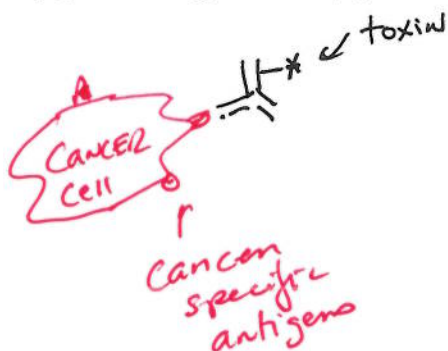 toxin
CANCER
Cell
Cancer
specific
antigens